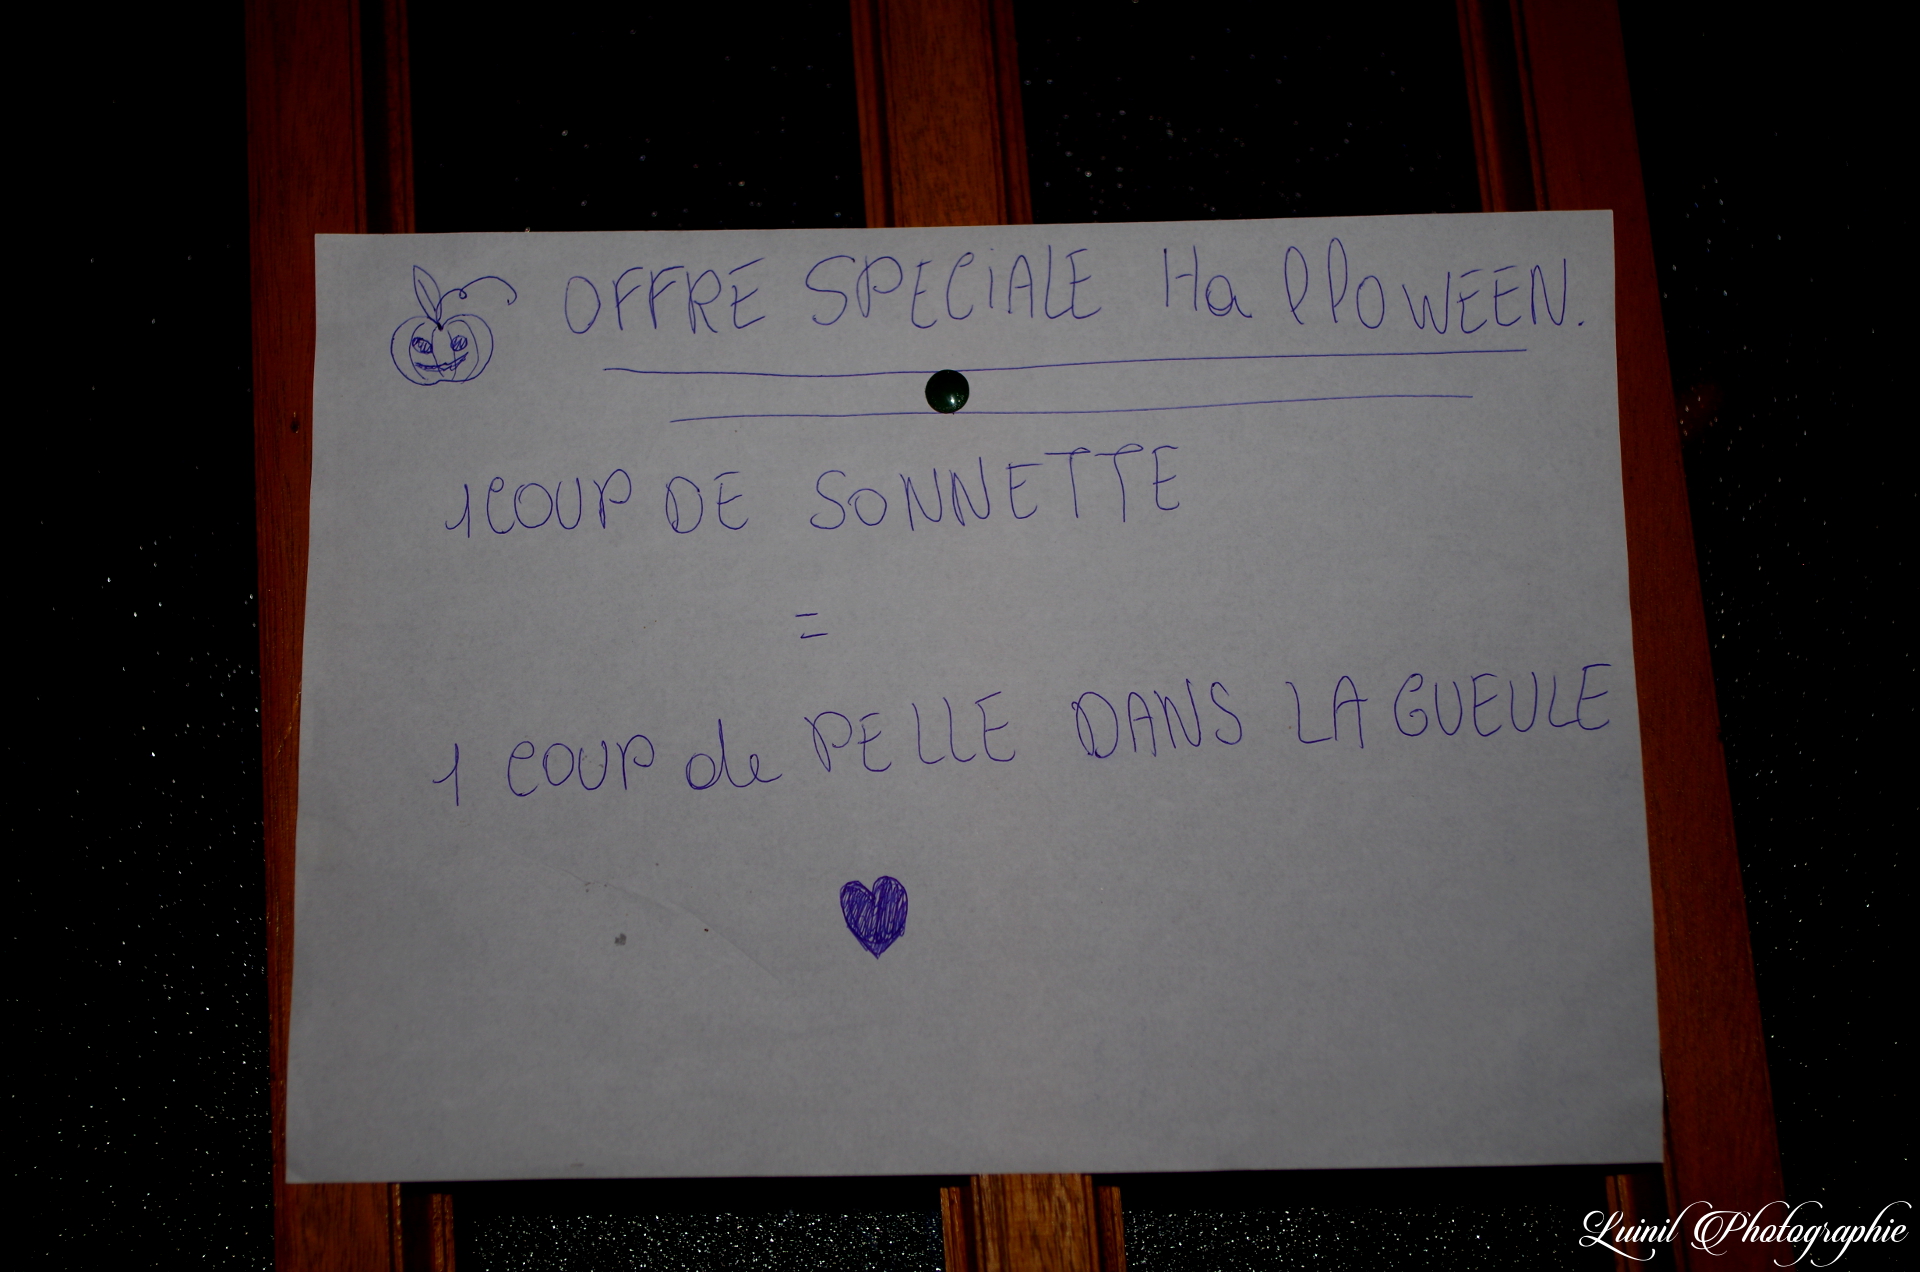 OFFRE SPECIALE HallOWEEN.
1 COUP DE SONNETTE
=
1 COUP de PELLE DANS LA GUEULE
Luinil Photographie